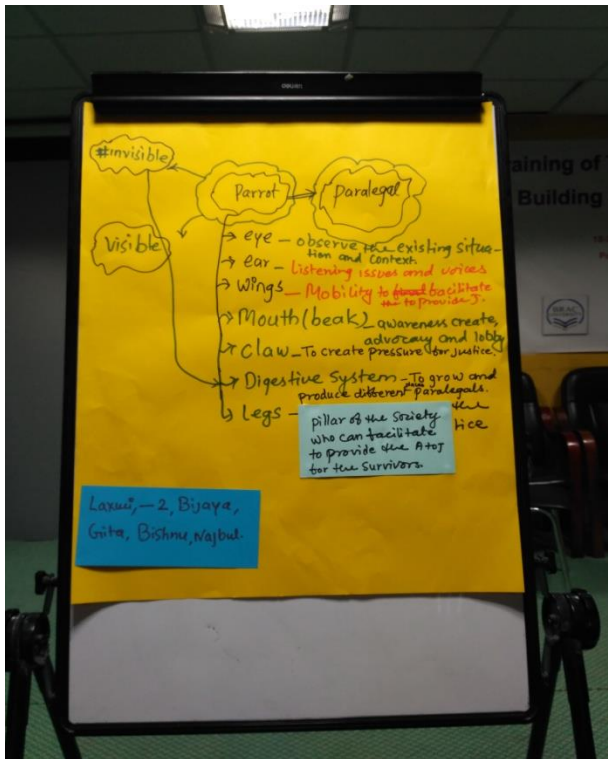 deli
#invisible
Parrot
Paralegal
Visible
eye – observe the existing situa-
tion and context.
ear – Listening issues and voices
Wings – Mobility to facilitate
to provide J.
Mouth (beak) – awareness create,
advocacy and lobby
Claw – To create pressure for justice
Digestive System – To grow and
produce different Paralegals.
Legs –
the
tice
pillar of the Society
who can facilitate
to provide the A to J
for the Survivors.
Laxmi, – 2, Bijaya,
Gita, Bishnu, Najbul.
raining of
Building
BRAC